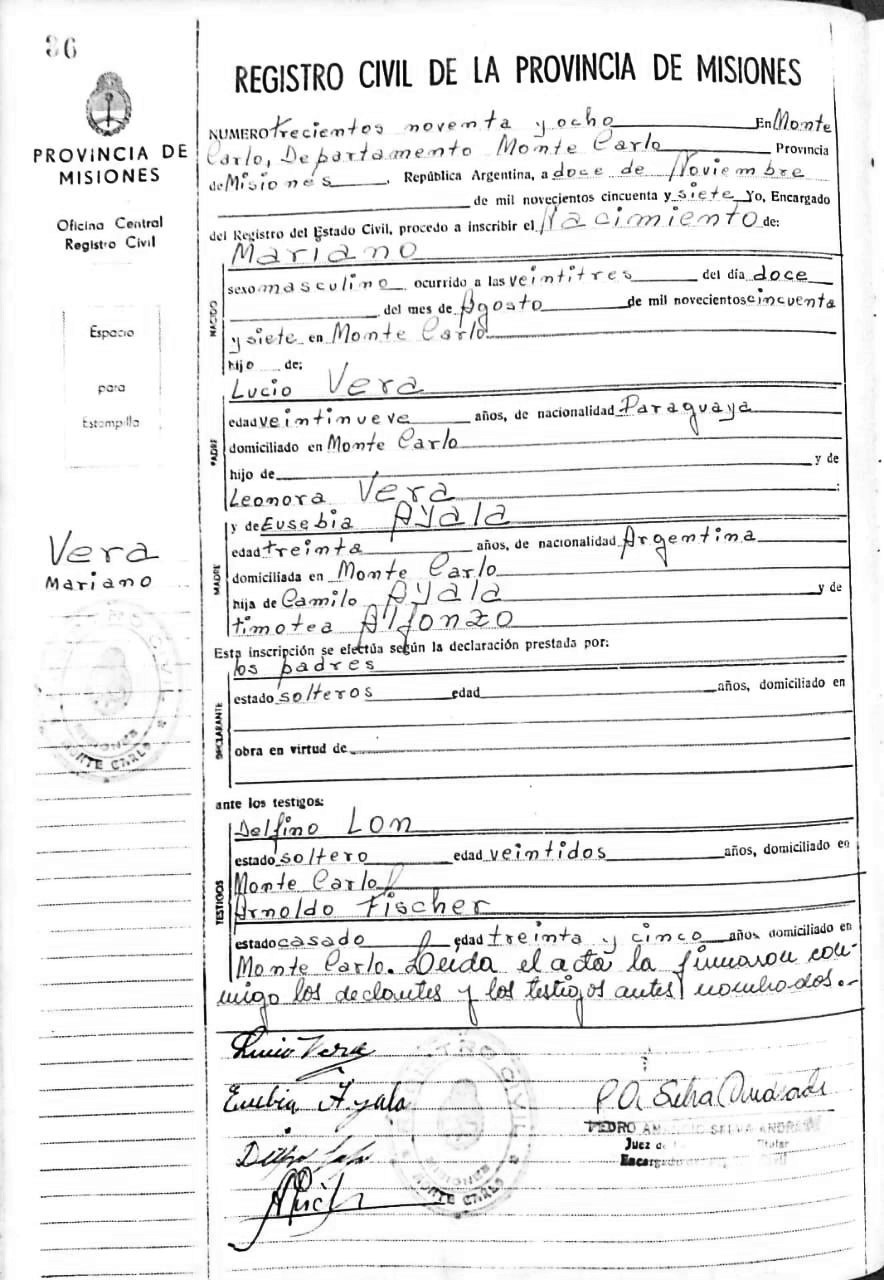 36
PROVINCIA DE
MISIONES
Oficina Central
Registro Civil
Espacio
para
Estampilla
Vera
Mariano
REGISTRO CIVIL DE LA PROVINCIA DE MISIONES
NUMERO trecientos noventa y ocho En Monte
Carlo, Departamento Monte Carlo Provincia
de Misiones, República Argentina, a doce de Noviembre
de mil novecientos cincuenta y siete Yo, Encargado
del Registro del Estado Civil, procedo a inscribir el Nacimiento de:
NACIDO
Mariano
sexo masculino ocurrido a las veintitres del día doce
del mes de Agosto de mil novecientos cincuenta
y siete en Monte Carlo
hijo de:
PADRE
Lucio Vera
edad veintinueve años, de nacionalidad Paraguaya
domiciliado en Monte Carlo
hijo de y de
Leonora Vera
MADRE
y de Eusebia Ayala
edad treinta años, de nacionalidad Argentina
domiciliada en Monte Carlo
hija de Camilo Ayala y de
timotea Alfonzo
Esta inscripción se efectúa según la declaración prestada por:
DECLARANTE
los padres
estado solteros edad años, domiciliado en
obra en virtud de
ante los testigos:
TESTIGOS
Delfino Lon
estado soltero edad veintidos años, domiciliado en
Monte Carlo
Arnoldo Fischer
estado casado edad treinta y cinco años domiciliado en
Monte Carlo. Leida el acta la firmaron con-
migo los declantes y los testigos antes nombrados.-
Lucio Vera
Eusebia Ayala
P A Selva Andrade
PEDRO SELVA ANDRADE
Juez de Titular
Encargado
MONTE CARLO
MISIONES
MONTE CARLO